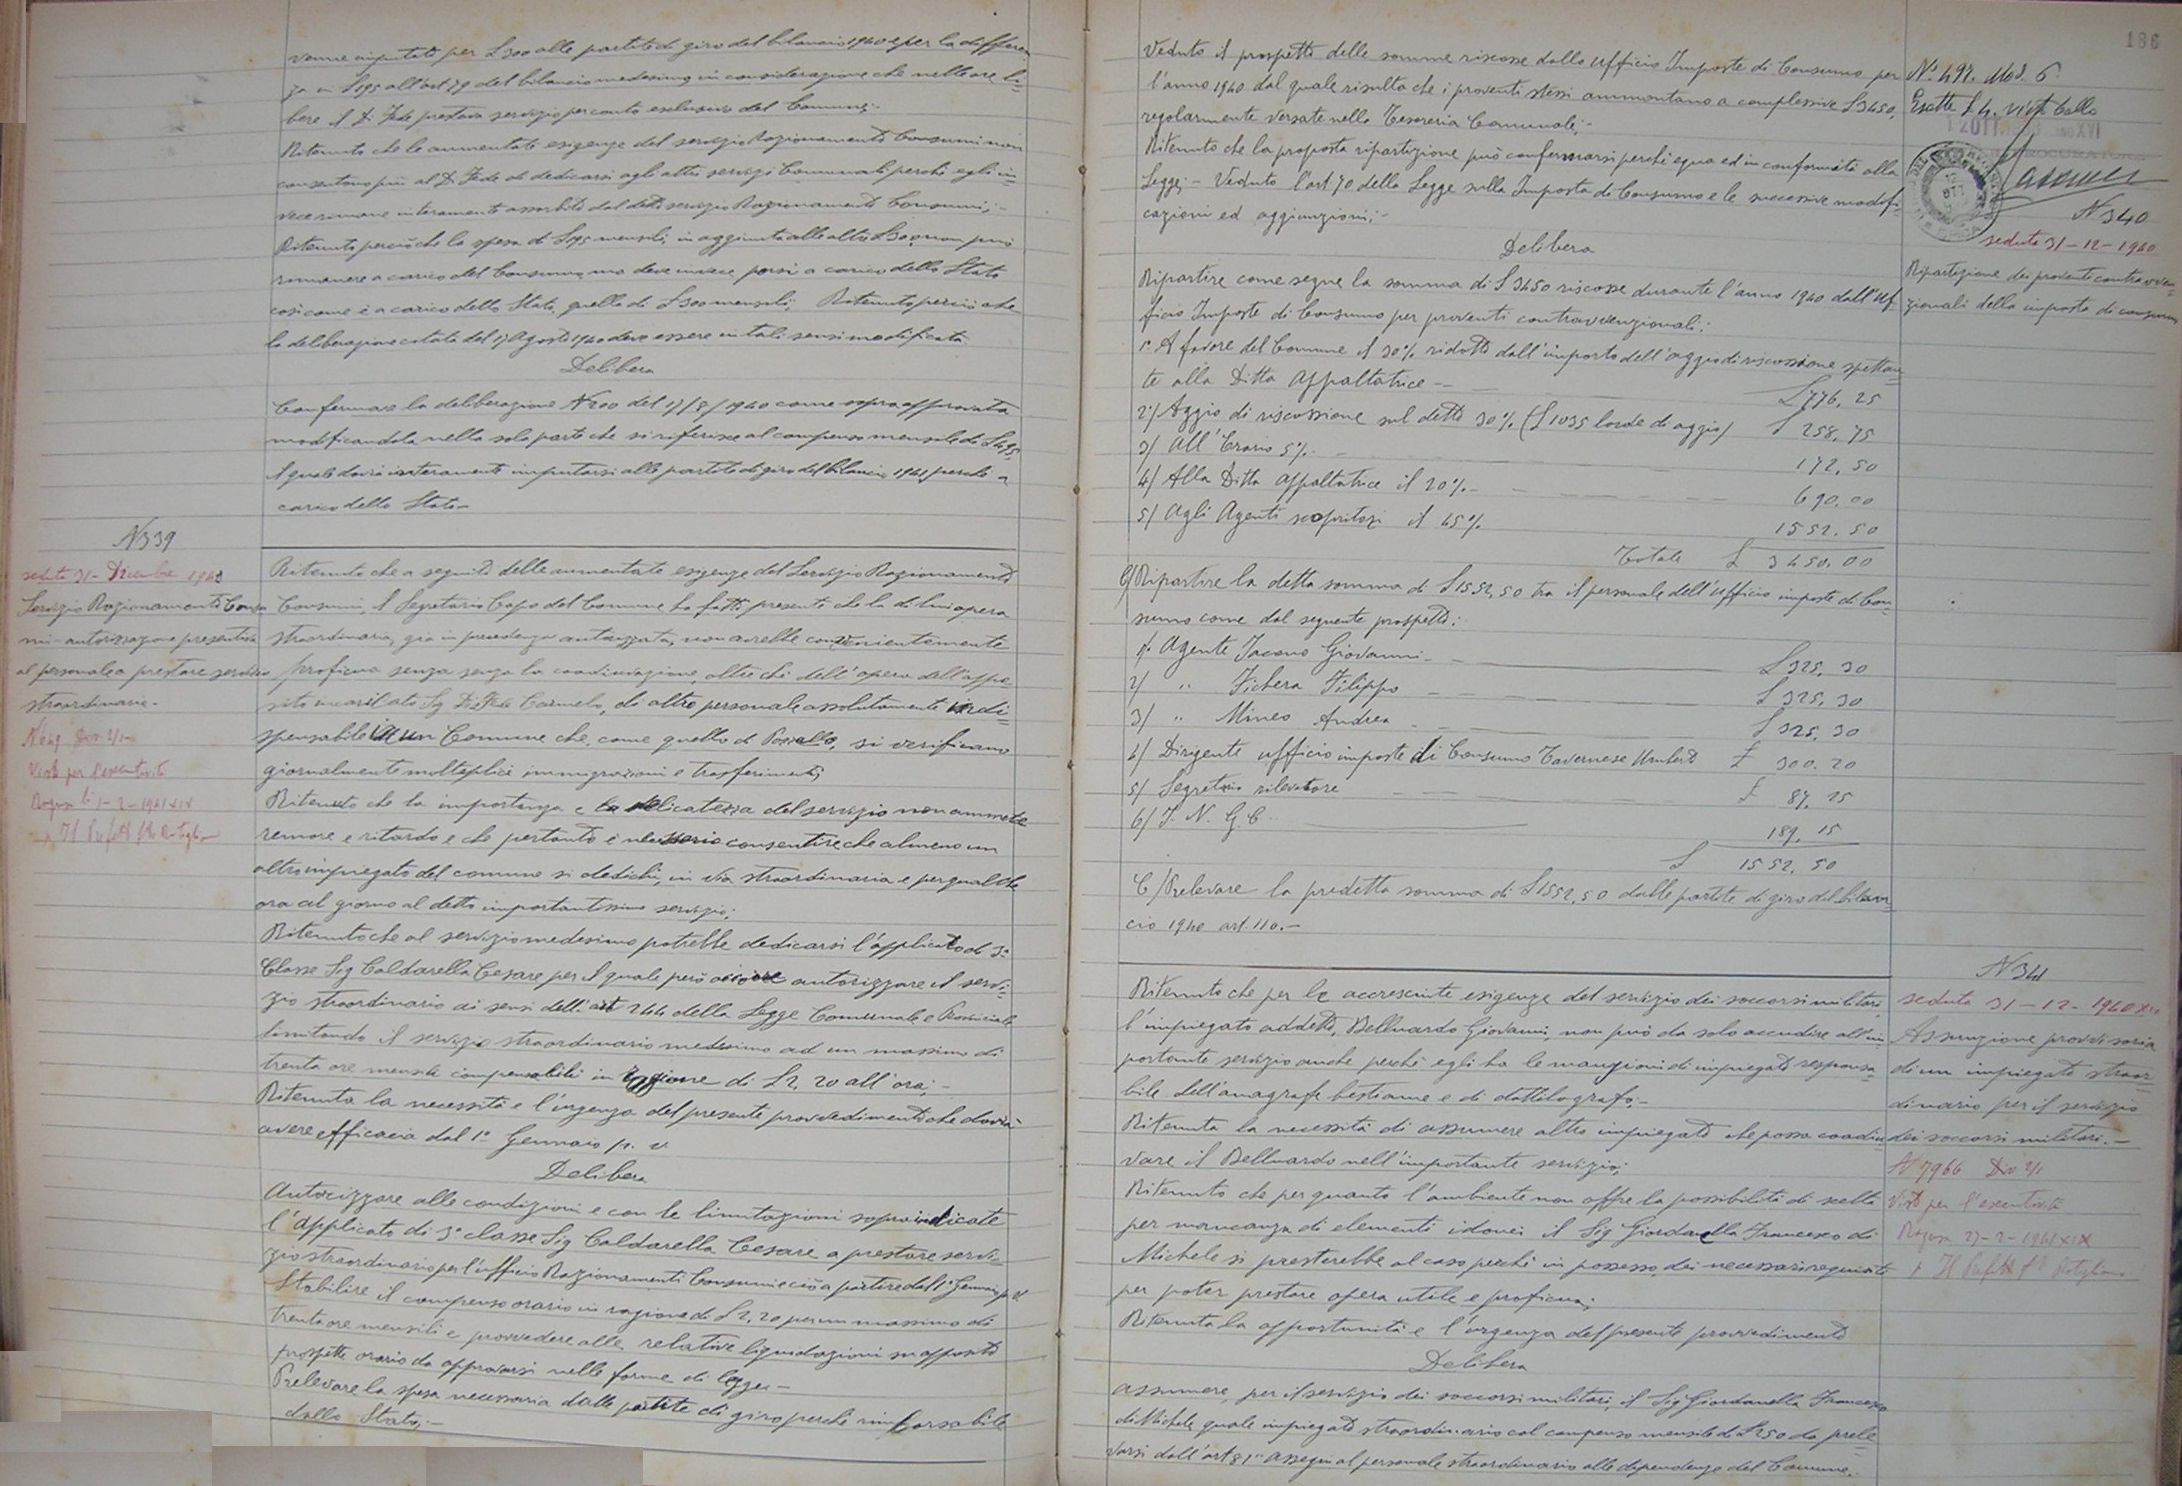 venne imputato per £ 300 alle partite di giro del bilancio 1940 e per la differen-
za in £ 195 all'art 79 del bilancio medesimo in considerazione che nelle ore li-
bere il Di Fede prestava servizio per conto esclusivo del Comune;-
Ritenuto che le aumentate esigenze del servizio Razionamento Consumi non
consentono più al Di Fede di dedicarsi agli altri servizi Comunali perché egli in-
vece rimane interamente assorbito dal detto servizio Razionamento Consumi;-
Ritenuto perciò che la spesa di £ 195 mensili, in aggiunta alle altre £ 300 non può
rimanere a carico del Comune ma deve invece porsi a carico dello Stato
così come è a carico dello Stato, quella di £ 300 mensili; Ritenuto perciò che
la deliberazione citata del 17 Agosto 1940 deve essere in tali sensi modificata
Delibera
Confermare la deliberazione N 200 del 17/8/1940 come sopra approvata
modificandola nella sola parte che si riferisce al compenso mensile di £ 495
il quale dovrà interamente imputarsi alle partite di giro del bilancio 1941 perché a
carico dello Stato-
N 339
seduta 31- Dicembre 1940
Servizio Razionamento Consu
mi- autorizzazione preventiva
al personale a prestare servizio
straordinario.-
Visto per l'esecutività
Ragusa li 1-2-1941 XIX
p Il Prefetto
Ritenuto che a seguito delle aumentate esigenze del Servizio Razionamento
Consumi, il Segretario Capo del Comune ha fatto presente che la di lui opera
straordinaria, già in precedenza autorizzata, non avrebbe convenientemente
proficua senza senza la coadiuvazione, oltre che dell'opera dell'appo-
sito incaricato Sig Di Fede Carmelo, di altro personale assolutamente indi-
spensabile in un Comune che, come quello di Pozzallo, si verificano
giornalmente molteplici immigrazioni e trasferimenti;
Ritenuto che la importanza e la delicatezza del servizio non ammette
remore e ritardo e che pertanto è necessario consentire che almeno un
altro impiegato del comune si dedichi, in via straordinaria e per qualche
ora al giorno al detto importantissimo servizio;
Ritenuto che al servizio medesimo potrebbe dedicarsi l'applicato di 3ª
Classe Sig Caldarella Cesare per il quale però occorre autorizzare il servi-
zio straordinario ai sensi dell'art 244 della Legge Comunale e Provinciale
limitando il servizio straordinario medesimo ad un massimo di
trenta ore mensili compensabili in ragione di £ 2,20 all'ora;-
Ritenuta la necessità e l'urgenza del presente provvedimento che dovrà
avere efficacia dal 1° Gennaio p. v.
Delibera
Autorizzare alle condizioni e con le limitazioni sopraindicate
l'applicato di 3ª classe Sig Caldarella Cesare a prestare servi-
zio straordinario per l'ufficio Razionamenti Consumi e ciò a partire dal 1° Gennaio p. v.
Stabilire il compenso orario in ragione di £ 2,20 per un massimo di
trenta ore mensili e provvedere alle relative liquidazioni su apposito
prospetto orario da approvarsi nelle forme di legge.-
Prelevare la spesa necessaria dalle partite di giro perché rimborsabile
dallo Stato;-
186
Veduto il prospetto delle somme riscosse dallo ufficio Imposte di Consumo per
l'anno 1940 dal quale risulta che i proventi stessi ammontano a complessive £ 3450,
regolarmente versate nella Tesoreria Comunale;-
Ritenuto che la proposta ripartizione può confermarsi perché equa ed in conformità alla
Legge;- Veduto l'art 70 della Legge sulla Imposta di Consumo e le successive modifi-
cazioni ed aggiunzioni;-
Delibera
Ripartire come segue la somma di £ 3450 riscosse durante l'anno 1940 dall'Uf-
ficio Imposte di Consumo per proventi contravvenzionali:
1° A favore del Comune il 30% ridotto dall'importo dell'aggio di riscossione spettan-
te alla Ditta Appaltatrice -- £ 776,25
2°/ Aggio di riscossione sul detto 30% (£ 1035 lorde di aggio) £ 258,75
3/ All'Erario 5%. 172,50
4/ Alla Ditta appaltatrice il 20%.- 690.00
5/ Agli Agenti scopritori il 45% 1552.50
Totale £ 3450.00
Ripartire la detta somma di £ 1552,50 tra il personale dell'ufficio imposte di Con-
sumo come dal seguente prospetto:
1° Agente Iacono Giovanni £ 325,30
2/ " Fichera Filippo £ 325,30
3/ " Mineo Andrea £ 325,30
4/ Dirigente ufficio imposte di Consumo Tavernese Umberto £ 300.20
5/ Segretario rilevatore £ 87,25
6/ I. N. G. C. 189,15
£ 1552,50
C/ Prelevare la predetta somma di £ 1552,50 dalle partite di giro del bilan-
cio 1940 art. 110.-
N° 492. Mod. 6
Esatte £ 4.
N 340
seduta 31-12-1940
Ripartizione dei proventi contravven-
zionali della imposta di consumo
Ritenuto che per le accresciute esigenze del servizio dei soccorsi militari,
l'impiegato addetto, Belluardo Giovanni, non può da solo accudire all'im-
portante servizio anche perché egli ha le mansioni di impiegato responsa-
bile dell'anagrafe bestiame e di dattilografo;-
Ritenuta la necessità di assumere altro impiegato che possa coadiu-
vare il Belluardo nell'importante servizio;
Ritenuto che per quanto l'ambiente non offre la possibilità di scelta
per mancanza di elementi idonei il Sig Giordanella Francesco di
Michele si presterebbe al caso perché in possesso dei necessari requisiti
per poter prestare opera utile e proficua;
Ritenuta la opportunità e l'urgenza del presente provvedimento
Delibera
assumere, per il servizio dei soccorsi militari, il Sig Giordanella Francesco
di Michele quale impiegato straordinario col compenso mensile di £ 250 da prele-
varsi dall'art 81 "assegni al personale straordinario alle dipendenze del Comune.
N 341
seduta 31-12-1940 XIX
Assunzione provvisoria
di un impiegato straor-
dinario per il servizio
dei soccorsi militari.-
N 7966 Div 2/1
Visto per l'esecutività
Ragusa 27-2-1941 XIX
p Il Prefetto